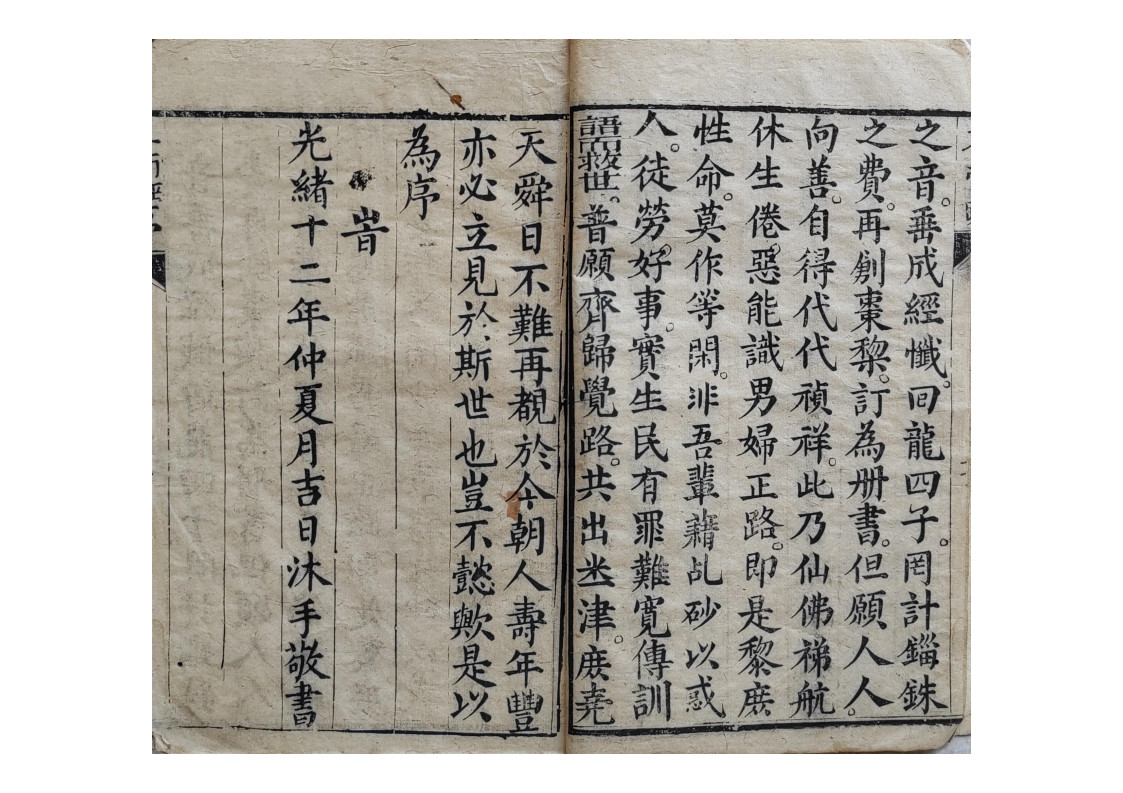 之音。垂成經懺。囘龍四子。罔計錙銖
之費。再劊棗棃。訂為册書。但願人人。
向善。自得代代禎祥。此乃仙佛梯航
休生倦。惡能識男婦正路。即是黎庻
性命。莫作等閑。非吾輩藉乩砂以惑
人。徒勞。好事。實生民有罪難寬傳訓
語而救世。普願齊歸覺路。共出迷津。庻堯
天舜日不難再覩於今朝人壽年豐
亦必立見於斯世也豈不懿歟是以
為序
旹
光緒十二年仲夏月吉日沐手敬書